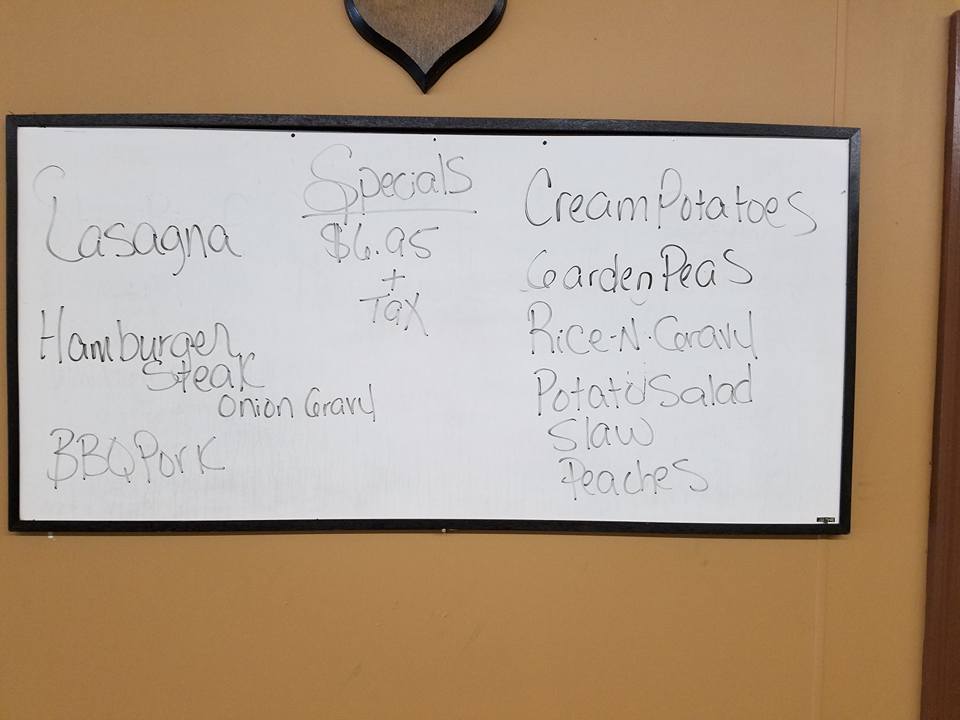 Specials
$6.95
+
Tax
Lasagna
Hamburger
Steak
Onion Gravy
BBQ Pork
Cream Potatoes
Garden Peas
Rice-N-Gravy
Potato Salad
Slaw
Peaches